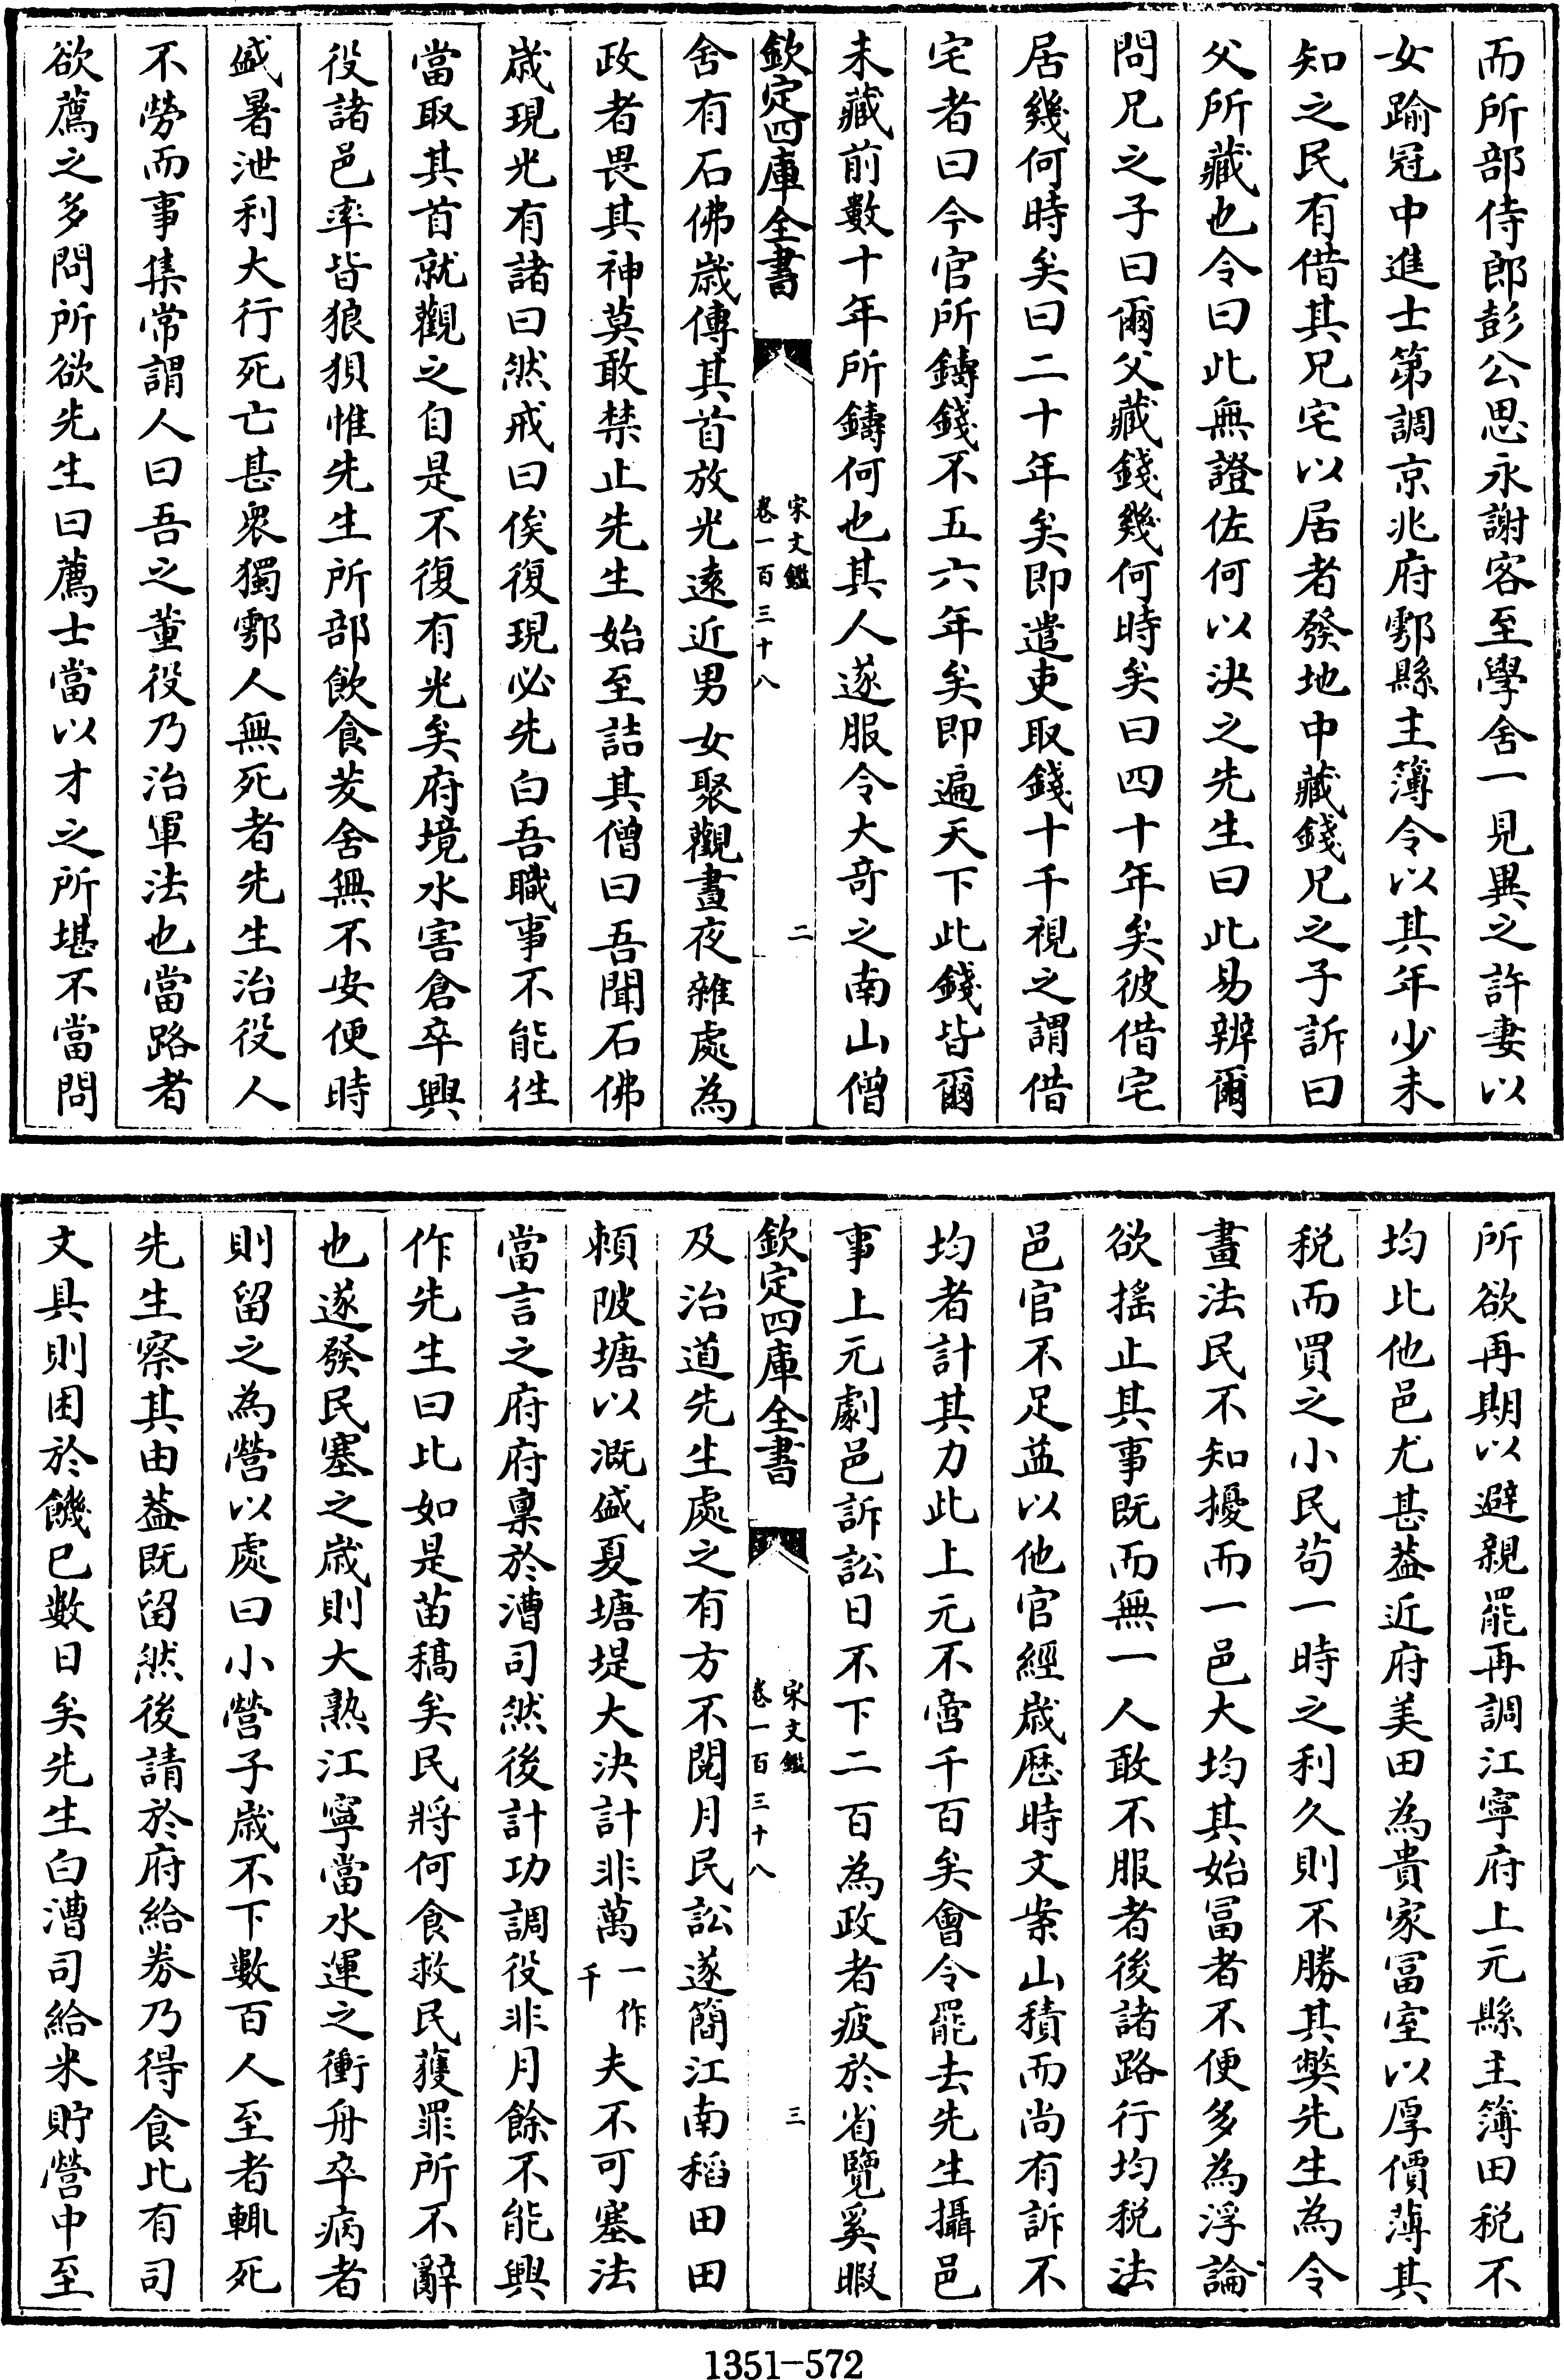 而所部侍郎彭公思永謝客至學舍一見異之許妻以
女踰冠中進士第調京兆府鄠縣主簿令以其年少未
知之民有借其兄宅以居者發地中藏錢兄之子訴曰
父所藏也令曰此無證佐何以決之先生曰此易辨爾
問兄之子曰爾父藏錢幾何時矣曰四十年矣彼借宅
居幾何時矣曰二十年矣即遣吏取錢十千視之謂借
宅者曰今官所鑄錢不五六年矣即遍天下此錢皆爾
未藏前數十年所鑄何也其人遂服令大奇之南山僧
欽定四庫全書
宋文鑑
卷一百三十八
二
舍有石佛歳傳其首放光遠近男女聚觀晝夜雜處為
政者畏其神莫敢禁止先生始至詰其僧曰吾聞石佛
歳現光有諸曰然戒曰俟復現必先白吾職事不能徃
當取其首就觀之自是不復有光矣府境水害倉卒興
役諸邑率皆狼狽惟先生所部飲食茇舍無不安便時
盛暑泄利大行死亡甚衆獨鄠人無死者先生治役人
不勞而事集常謂人曰吾之董役乃治軍法也當路者
欲薦之多問所欲先生曰薦士當以才之所堪不當問
所欲再期以避親罷再調江寧府上元縣主簿田稅不
均比他邑尤甚葢近府美田為貴家富室以厚價薄其
稅而買之小民苟一時之利久則不勝其弊先生為令
畫法民不知擾而一邑大均其始富者不便多為浮論
欲搖止其事既而無一人敢不服者後諸路行均稅法
邑官不足益以他官經歳歷時文案山積而尚有訴不
均者計其力比上元不啻千百矣會令罷去先生攝邑
事上元劇邑訴訟日不下二百為政者疲於省覽奚暇
欽定四庫全書
宋文鑑
卷一百三十八
三
及治道先生處之有方不閱月民訟遂簡江南稻田田
賴陂塘以溉盛夏塘堤大決計非萬一作千夫不可塞法
當言之府府稟於漕司然後計功調役非月餘不能興
作先生曰比如是苗稿矣民將何食救民獲罪所不辭
也遂發民塞之歳則大熟江寧當水運之衝舟卒病者
則留之為營以處曰小營子歳不下數百人至者輒死
先生察其由葢既留然後請於府給券乃得食比有司
文具則困於饑已數日矣先生白漕司給米貯營中至
1351-572